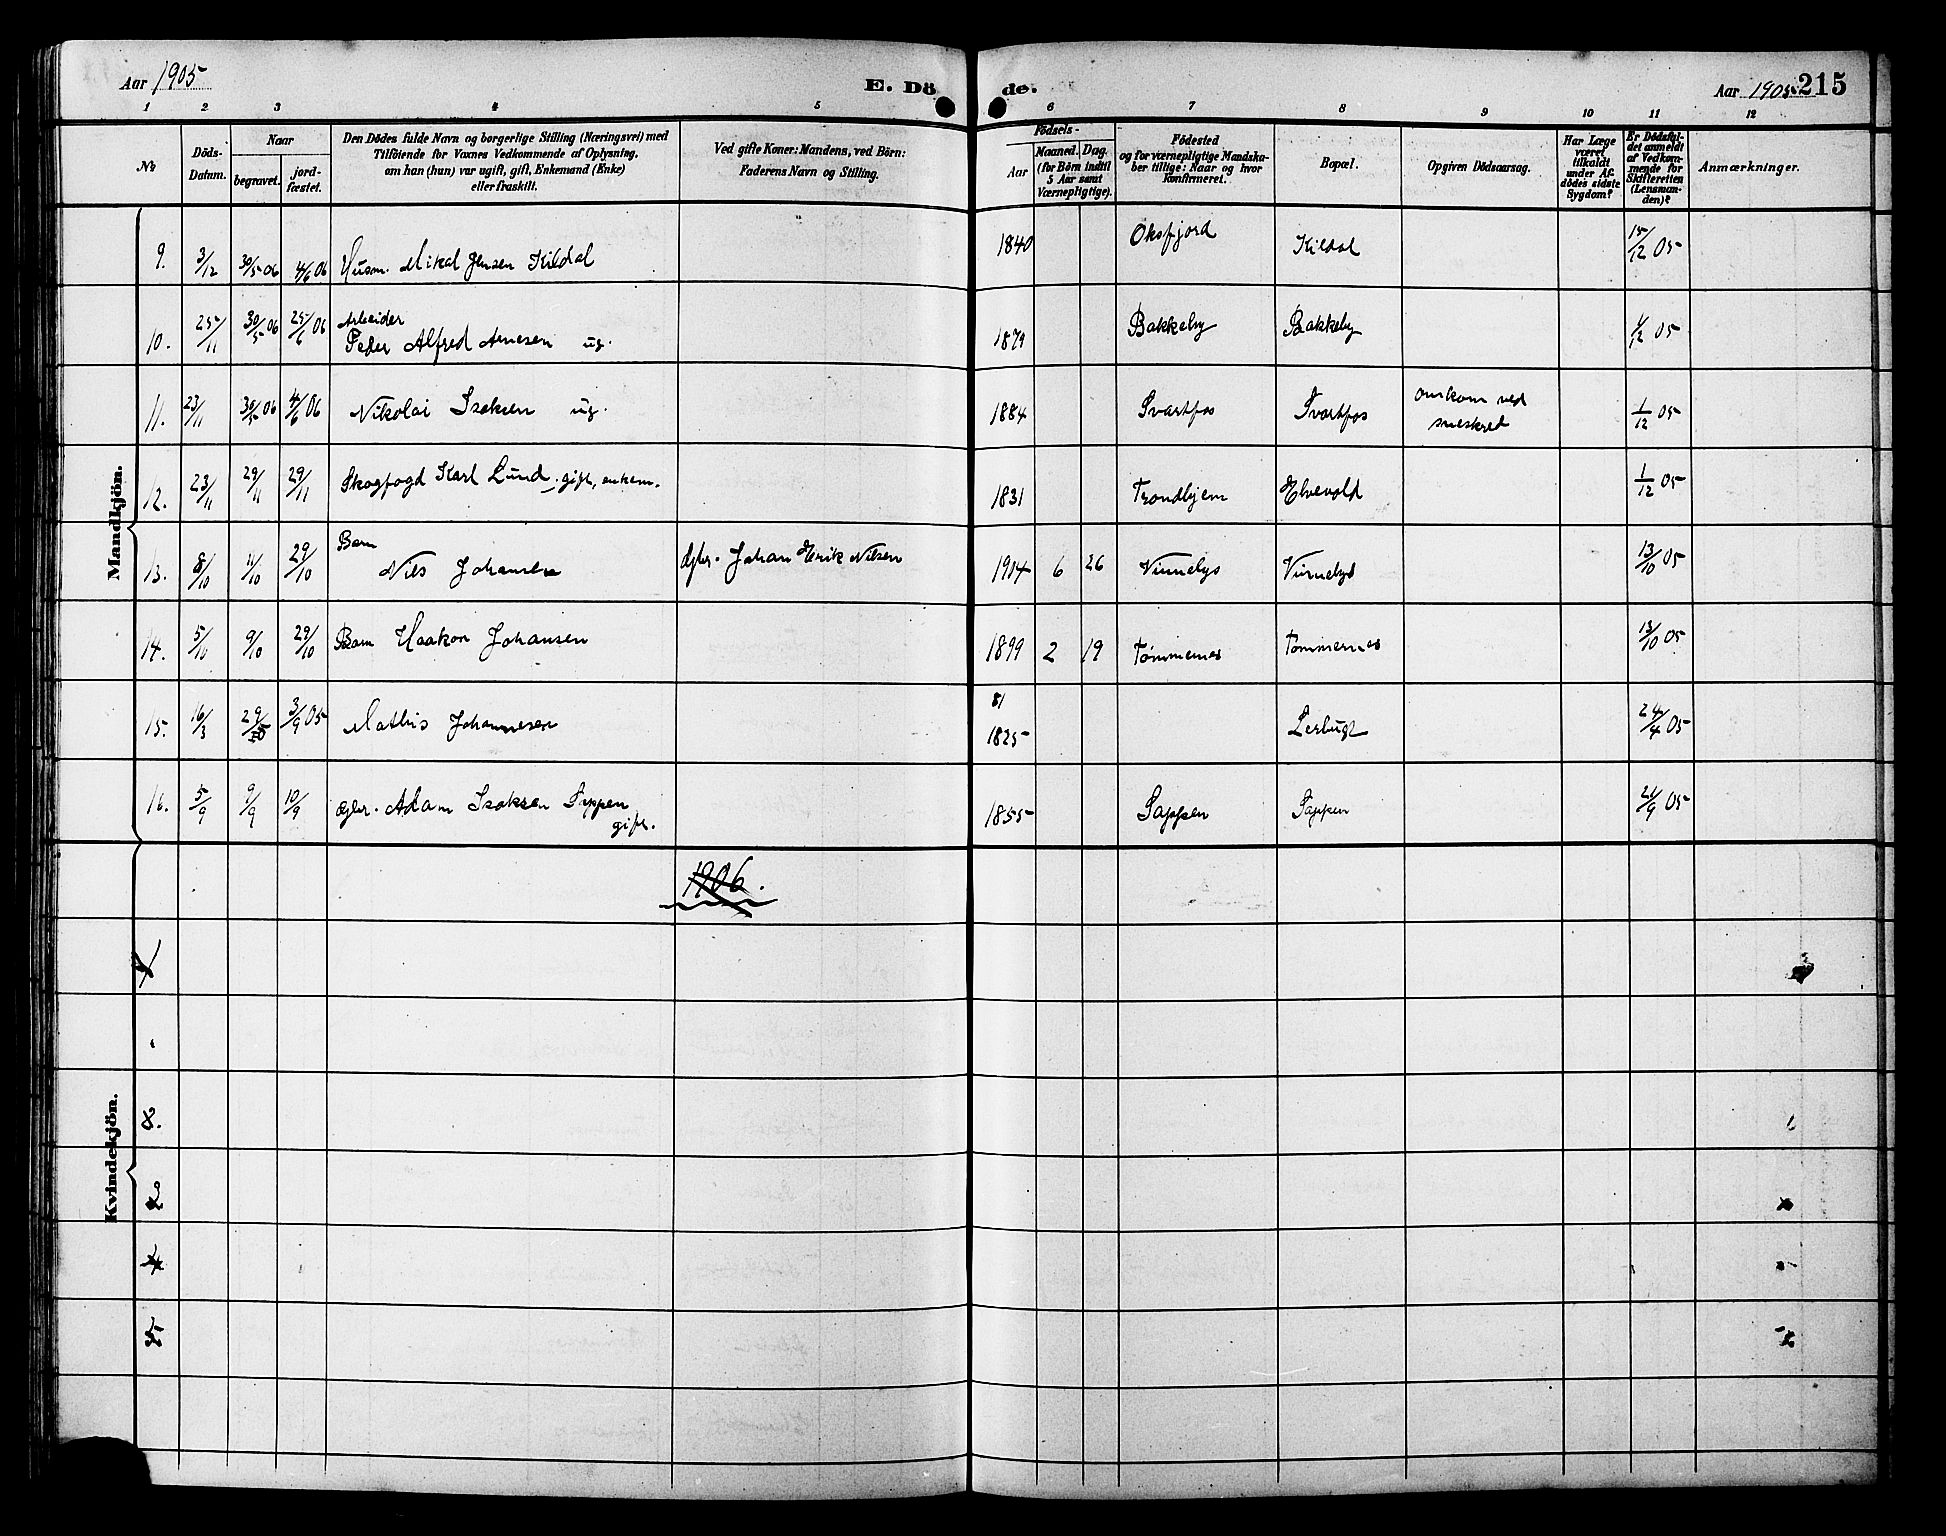 Aar 1905
E. Dö de.
Aar 1905 215
1 2 3 4 5 6 7 8 9 10 11 12
№
Döds-Datum.
Naar
begravet.
jord-fæstet.
Den Dödes fulde Navn og borgerlige Stilling (Næringsvei) med
Tilföiende for Voxnes Vedkommende af Oplysning,
om han (hun) var ugift, gift, Enkemand (Enke)
eller fraskilt.
Ved gifte Koner: Mandens, ved Börn:
Faderens Navn og Stilling.
Födsels-
Aar
Maaned. Dag.
(for Börn indtil
5 Aar samt
Værnepligtige).
Födested
og for værnepligtige Mandska-
ber tillige: Naar og hvor
Konfirmeret.
Bopæl.
Opgiven Dödsaarsag.
Har Læge
været
tilkaldt
under Af-
dödes sidste
Sygdom?
Er Dödsfal-
det anmeldt
af Vedkom-
mende for
Skifteretten
(Lensman-
den)?
Anmærkninger.
Mandkjön.
9. 3/12 30/5 06 4/6 06 Husm. Mikal Jensen Kildal 1840 Oksfjord Kildal 15/12 05
10. 25/11 30/5 06 25/6 06 Arbeider
Peder Alfred Arnesen ug. 1879 Bakkeby Bakkeby 1/12 05
11. 23/11 30/5 06 4/6 06 Nikolai Isaksen ug. 1884 Svartfos Svartfos omkom ved
sneskred 1/12 05
12. 23/11 29/11 29/11 Skogfogd Karl Lund, gift, enkem. 1831 Trondhjem Elvevold 1/12 05
13. 8/10 11/10 29/10 Barn
Nils Johansen Gbr. Johan Erik Nilsen 1904 6 26 13/10 05
14. 5/10 9/10 29/10 Barn Haakon Johansen 1899 2 19 Tømmernes Tømmernes 13/10 05
15. 16/3 29/ 3/9 05 Mathis Johannesen 81
1825 Lerbugt 24/4 05
16. 5/9 9/9 10/9 Gbr. Adam Isaksen Sappen
gift. 1855 Sappen Sappen 21/9 05
1906.
Kvindekjön.
8.
2
4
5